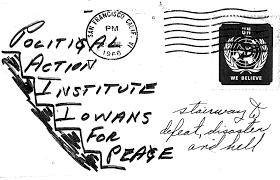 POLITICAL
ACTION
INSTITUTE
IOWANS
FOR
PEACE
SAN FRANCISCO, CALIF.
PM
1966
UN
WE BELIEVE
stairway to
defeat, disaster
and hell